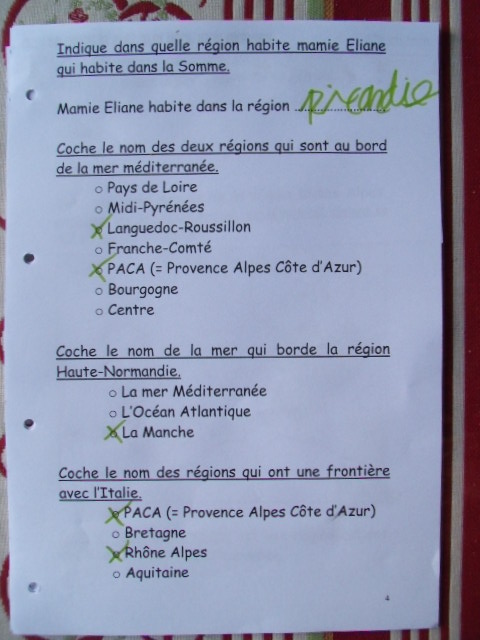 Indique dans quelle région habite mamie Eliane
qui habite dans la Somme.
Mamie Eliane habite dans la région ....picardie
Coche le nom des deux régions qui sont au bord
de la mer méditerranée.
o Pays de Loire
o Midi-Pyrénées
o Languedoc-Roussillon
o Franche-Comté
o PACA (= Provence Alpes Côte d'Azur)
o Bourgogne
o Centre
Coche le nom de la mer qui borde la région
Haute-Normandie.
o La mer Méditerranée
o L'Océan Atlantique
o La Manche
Coche le nom des régions qui ont une frontière
avec l'Italie.
o PACA (= Provence Alpes Côte d'Azur)
o Bretagne
o Rhône Alpes
o Aquitaine
4